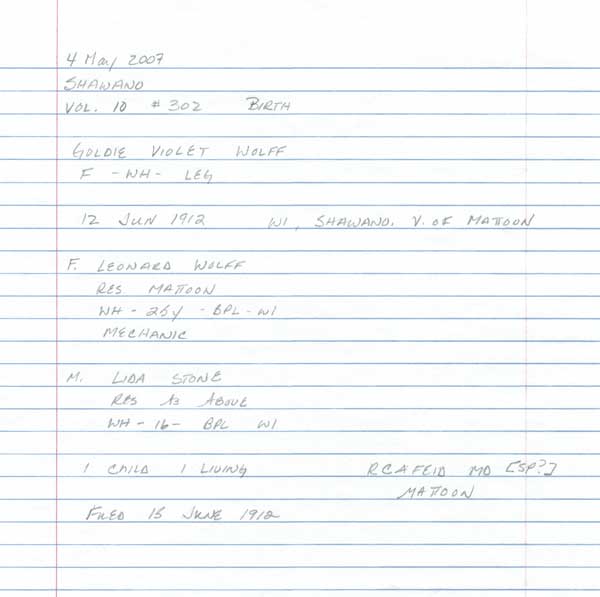 4 May 2007
SHAWANO
VOL. 10 # 302 BIRTH
GOLDIE VIOLET WOLFF
F - WH - LEG
12 JUN 1912 WI, SHAWANO, V. OF MATTOON
F. LEONARD WOLFF
RES MATTOON
WH - 25y - BPL - WI
MECHANIC
M. LIDA STONE
RES AS ABOVE
WH - 16 - BPL WI
1 CHILD 1 LIVING RCAFEID MD [SP?]
MATTOON
FILED 15 JUNE 1912